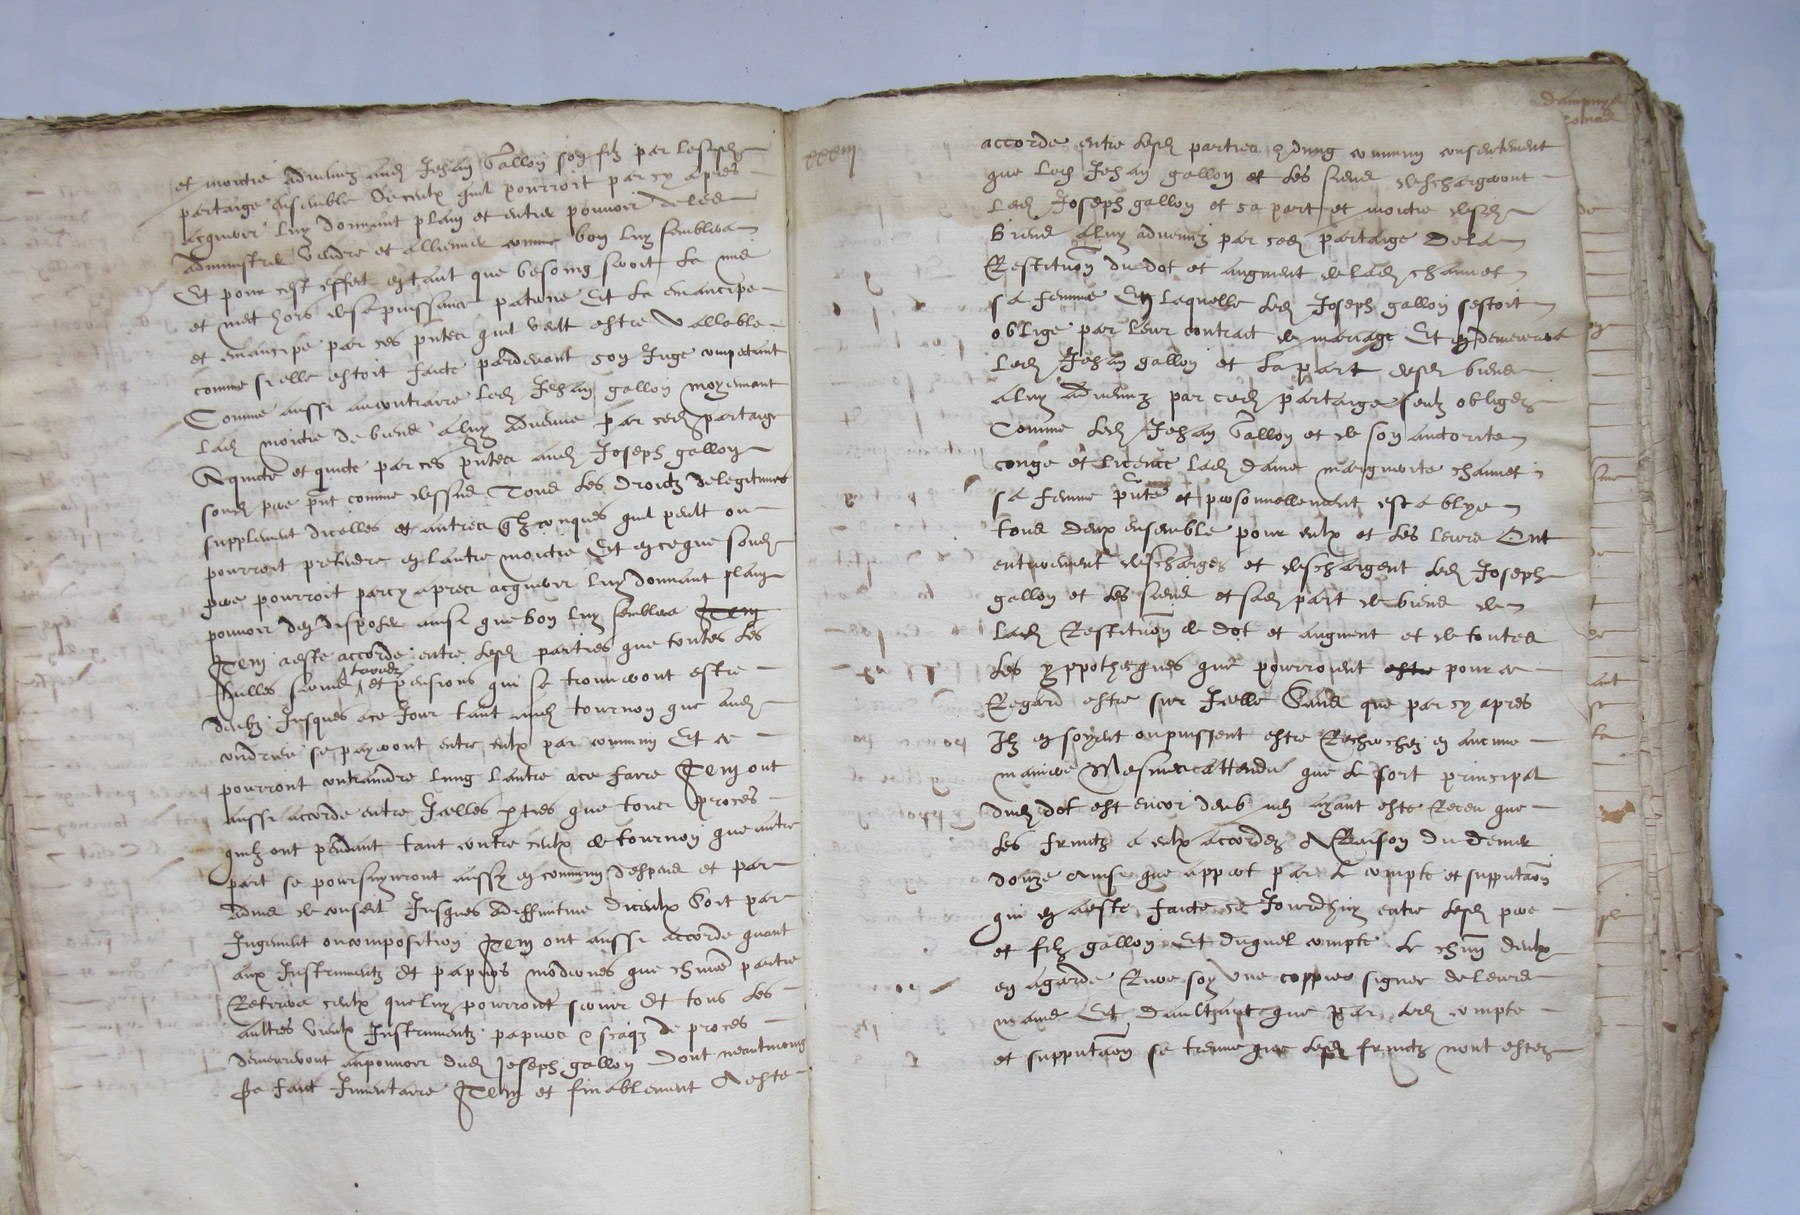 et moictie advenuz aud Jehan Gallon son filz par lesusd
partaige ensemble de ceulx quil pourroit par cy apres
acquerir luy donnant plain et entier pouvoir de les
administrer vendre et allienner comme bon luy semblera
Et pour cest effect en tant que besoing seroit la mis
et mect hors de sa puissance paterne Et la emancipe
et emancipe par ces pntes quil veult estre vallable
comme si elle estoit faicte pardevant son Juge competant
Comme aussi au contraire led Jehan gallon moyennant
lad moictie de biens a luy advenue par ced partaige
Aquicte et quicte par ces pntes aud Joseph gallon
sond pere pnt comme dessus Tous les droictz de legitimes
supplement dicelles et autres quelzconques quil peult ou
pourroit pretendre en lautre moictie Et en ce que sond
pere pourroit par cy apres acquerir luy donnant plain
pouvoir den disposer ainsi que bon luy semblera Item
Item a este accorde entre lesd parties que toutes les
tailles et pensions qui se trouveront estre
deubz Jusques a ce Jour tant aud tournon que aud
se payeront entre eulx par commun Et ce
pourront contraindre lung lautre a ce faire Item ont
aussi accorde entre Icelles pties que tous proces
quilz ont pendant tant contre ceulx de tournon que autre
part se poursuyvront aussy en commun despens et par
advis de conseil Jusques a diffinitive diceulx Soit par
Jugement ou composition Item ont aussi accorde quant
aux Instrumentz Et papiers modernes que chune partie
Retirera ceulx que luy pourront servir Et tous les
aultres vieulx Instrumentz papiers & sacqz de proces
demeureront au pouvoir dud Joseph gallon Dont neantmoing
sera faict Inventaire Item et finablement A este
xxxiii
accorde entre lesd parties & dung commun consentement
que led Jehan gallon et les siens deschargeront
led Joseph gallon et sa part et moictie desd
biens a luy advenuz par ced partaige De la
Restituon du dot et augment de lad channet
sa femme En laquelle led Joseph gallon sestoit
oblige par leur contract de mariage Et en demeurera
led Jehan gallon et la part desd biens
a luy advenuz par ced partaige seulz obligez
Comme led Jehan Gallon et de son auctorite
conge et licence lad dame marguerite channet
sa femme pnte et personnellement establye
tous deux ensemble pour eulx et les leurs Ont
entierement descharges et deschargent led Joseph
gallon et les siens et sad part de biens de
lad Restituon de dot et augment et de toutes
les yppotheques que pourroient estre pour ce
Regard estre sur Icelle Sans que par cy apres
Ilz en soyent ou puissent estre Recherchez en aucune
maniere Mesmes attendu que le sort principal
dud dot est encor deub nen ayant este Receu que
les fruictz a eulx accordez A Raison du denier
douze Ainsi que appert par le compte et supputaon
qui en a este faicte ce Jourdhuy entre lesd pere
et filz gallon Et duquel compte le chun deulx
en a garde Riere soy une coppie signee de leurs
mains Et Daultant que par led compte
et supputaon se treuve que lesd fruictz nont estez